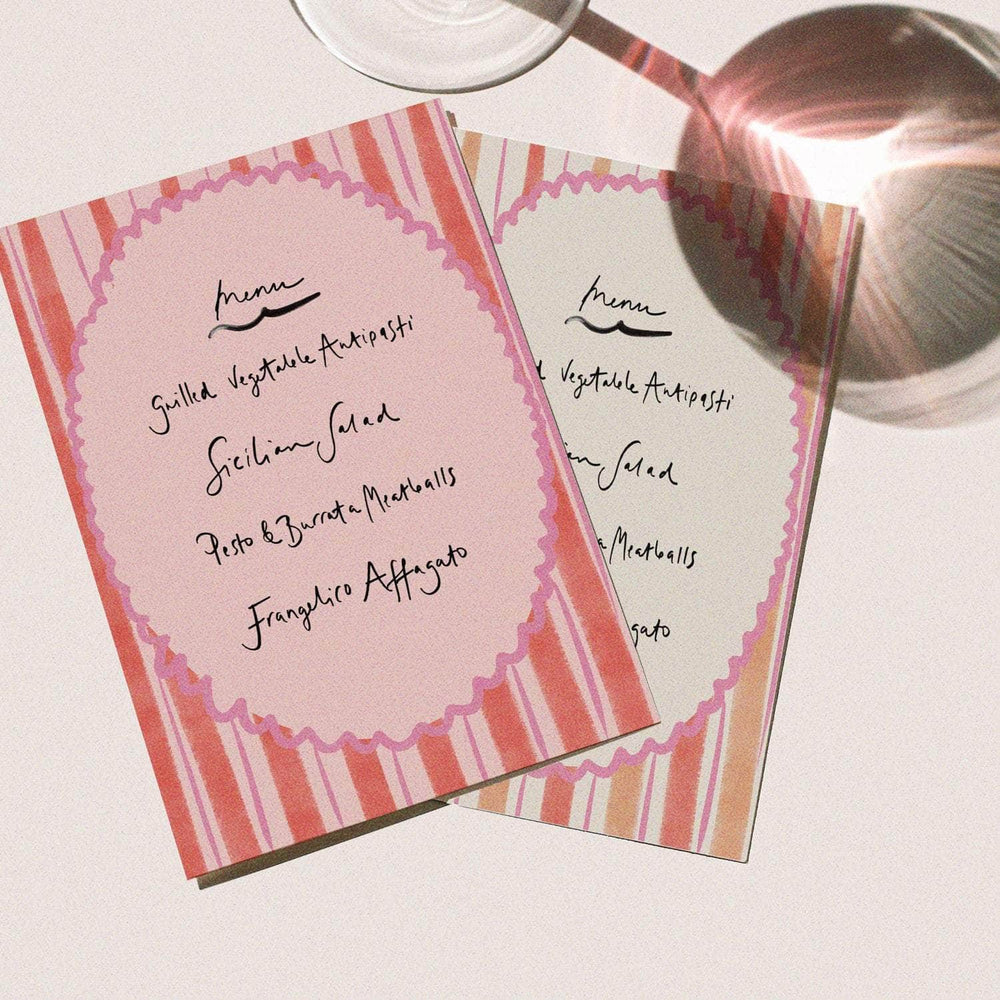 Menu
Grilled Vegetable Antipasti
Sicilian Salad
Pesto & Burrata Meatballs
Frangelico Affagato
Menu
d Vegetable Antipasti
ian Salad
a Meatballs
gato